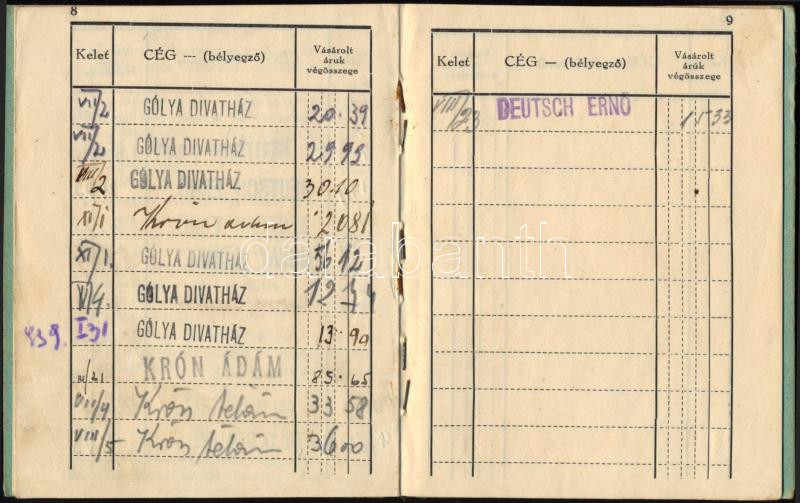 8
Kelet CÉG --- (bélyegző) Vásárolt áruk végösszege
VII/2 GÓLYA DIVATHÁZ 20 39
VII/2 GÓLYA DIVATHÁZ
VIII/2 GÓLYA DIVATHÁZ 30 10
XI/1 Krón Ádám 20 81
XI/1. GÓLYA DIVATHÁZ 12
GÓLYA DIVATHÁZ 12
939. I 31 GÓLYA DIVATHÁZ 13 90
III/21 KRÓN ÁDÁM 85. 65
VIII/4 Krón 33 58
VIII/5 Krón 36 00
9
Kelet CÉG — (bélyegző) Vásárolt árúk végösszege
VIII/23 DEUTSCH ERNŐ 15 33
darabanth